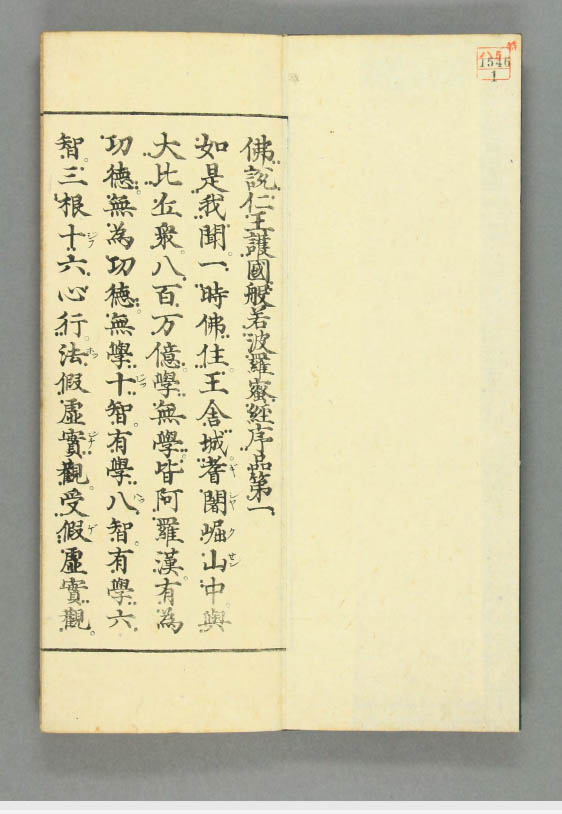 佛說仁王護國般若波羅蜜經序品第一
如是我聞一時佛住王舍城耆闍崛山中與
大比丘衆八百万億學無學皆阿羅漢有為
功德無為功德無學十智有學八智有學六
智三根十六心行法假虛實觀受假虛實觀
1546
1